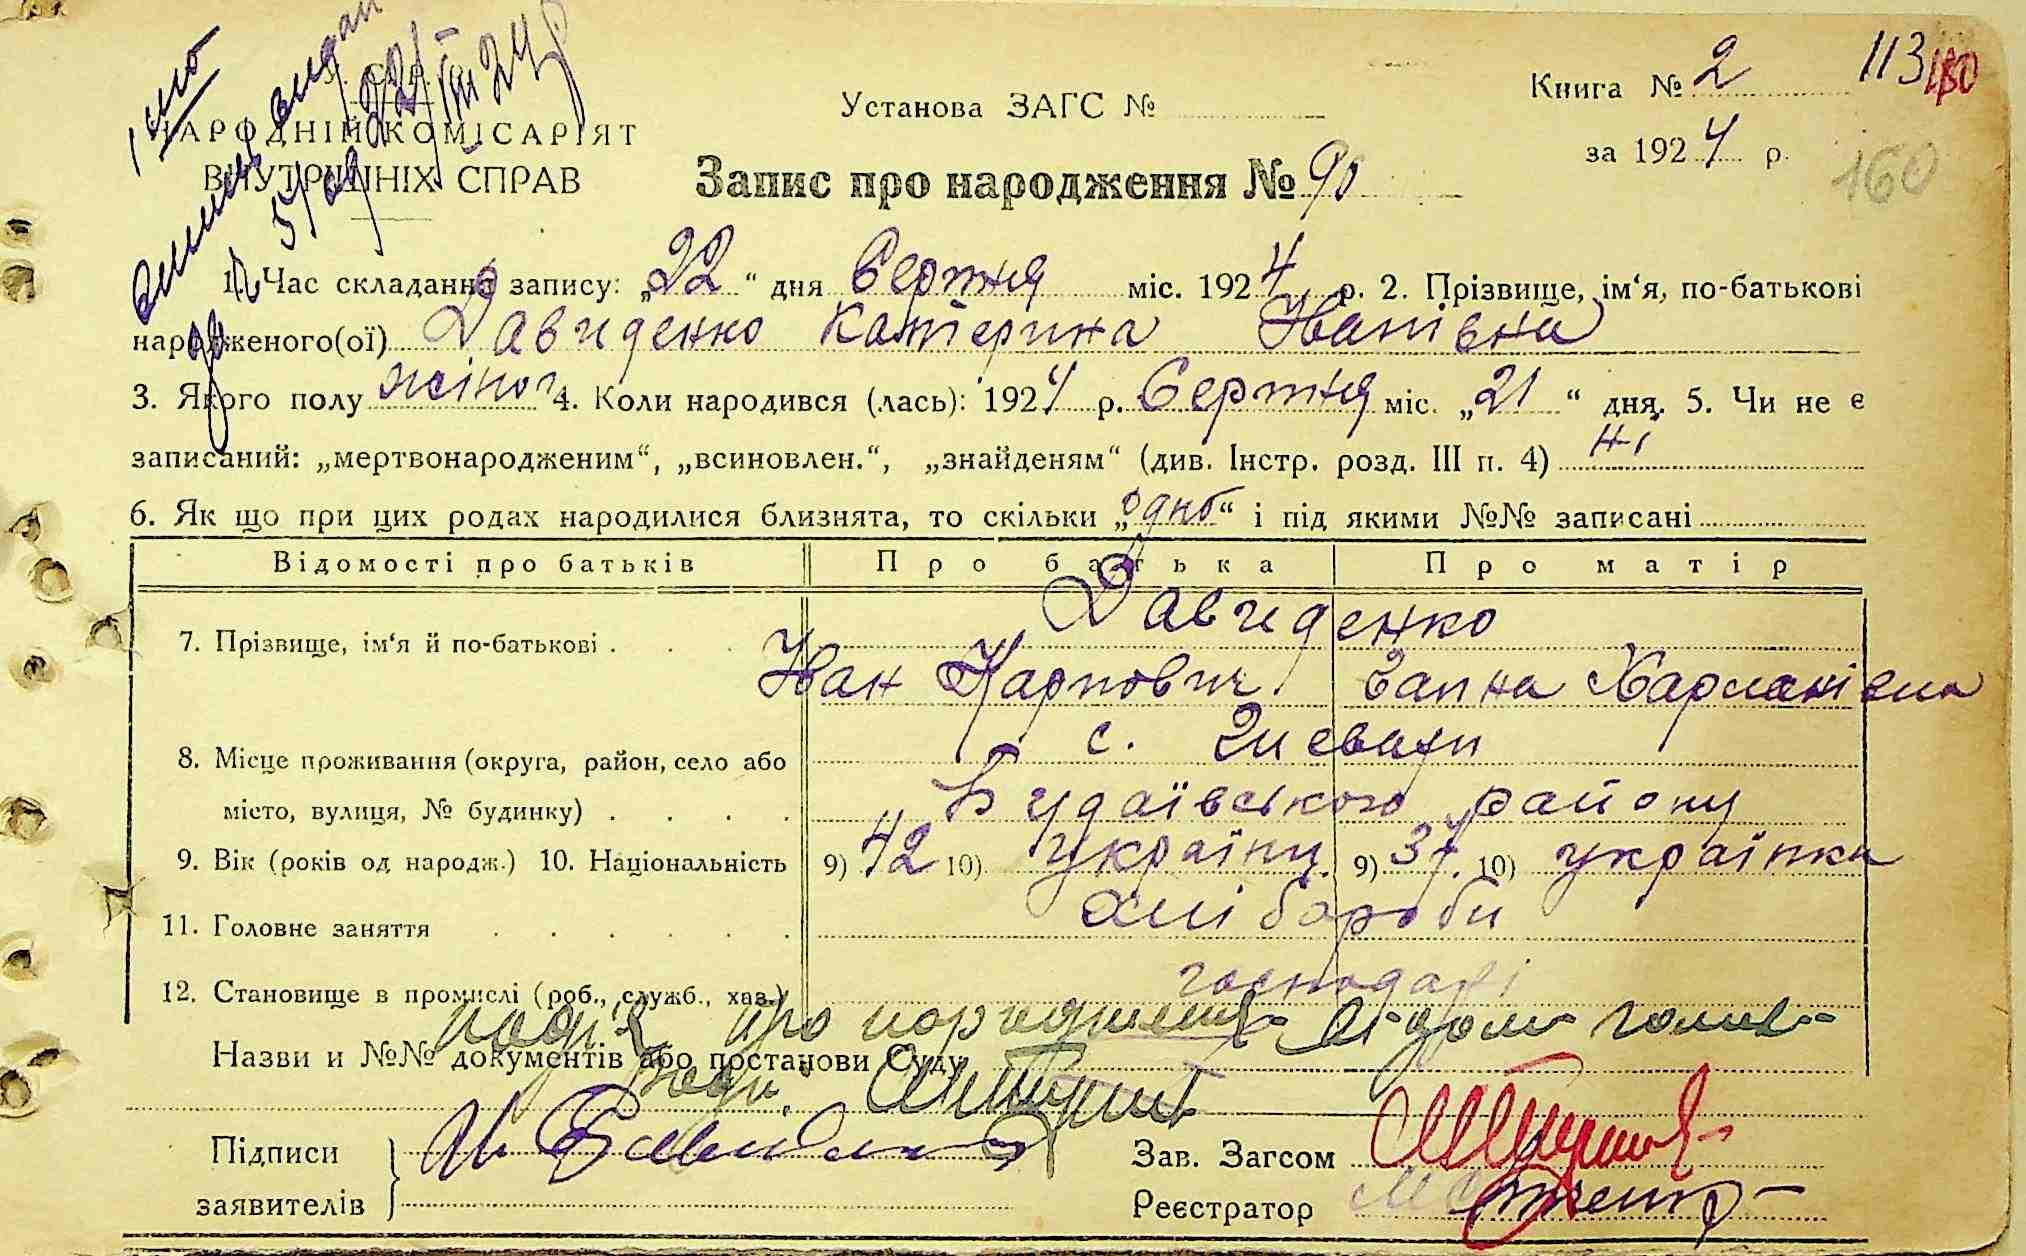 У. С. Р. Р.
НАРОДНІЙ КОМІСАРІЯТ
ВНУТРІШНІХ СПРАВ
Установа ЗАГС №
Книга № 2
113
за 1924 р.
160
Запис про народження № 90
1. Час складання запису: „22“ дня Серпня міс. 1924 р. 2. Прізвище, ім‘я, по-батькові
народженого(ої) Давиденко Катерина Іванівна
3. Якого полу жіноч 4. Коли народився (лась): 1924 р. Серпня міс. „21“ дня. 5. Чи не є
записаний: „мертвонародженим“, „всиновлен.“, „знайденям“ (див. Інстр. розд. III п. 4) ні
6. Як що при цих родах народилися близнята, то скільки „одно“ і під якими №№ записані
Відомості про батьків Про батька Про матір
Давиденко
7. Прізвище, ім‘я й по-батькові
Іван Карпович Ганна
с.
8. Місце проживання (округа, район, село або
місто, вулиця, № будинку) Будаївського району
9. Вік (років од народж.) 10. Національність 9) 42 10) українц. 9) 37. 10) українка
11. Головне заняття хлібороби
12. Становище в промислі (роб., служб., хаз.) господарі
Назви и №№ документів або постанови Суду
Підписи
заявителів
Зав. Загсом
Реєстратор